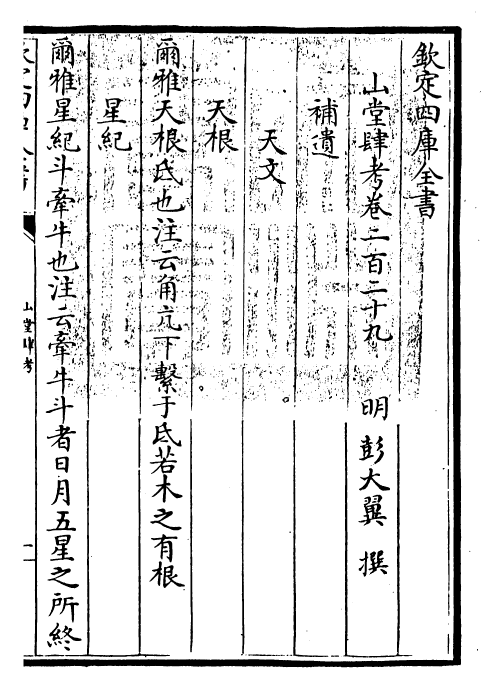 欽定四庫全書
山堂肆考卷二百二十九　明　彭大翼　撰
補遺
天文
天根
爾雅天根氐也注云角亢下繫于氐若木之有根
星紀
爾雅星紀斗牽牛也注云牽牛斗者日月五星之所終
山堂肆考